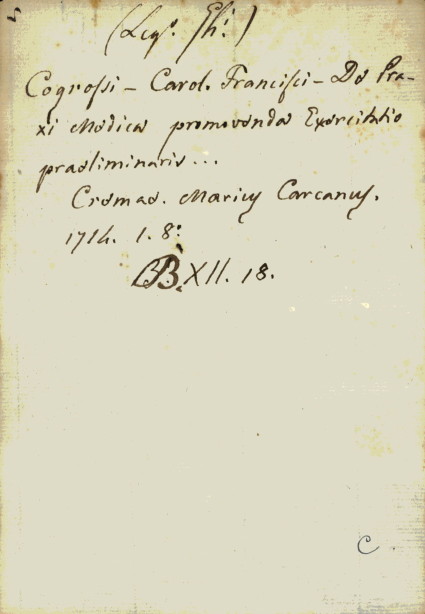 Cogrossi - Carol. Francisci - De Pra-
xi Medica promovenda Exercitatio
praeliminaris...
Cremae. Marius Carcanus.
1714. 1. 8°
BB. XII. 18.
C